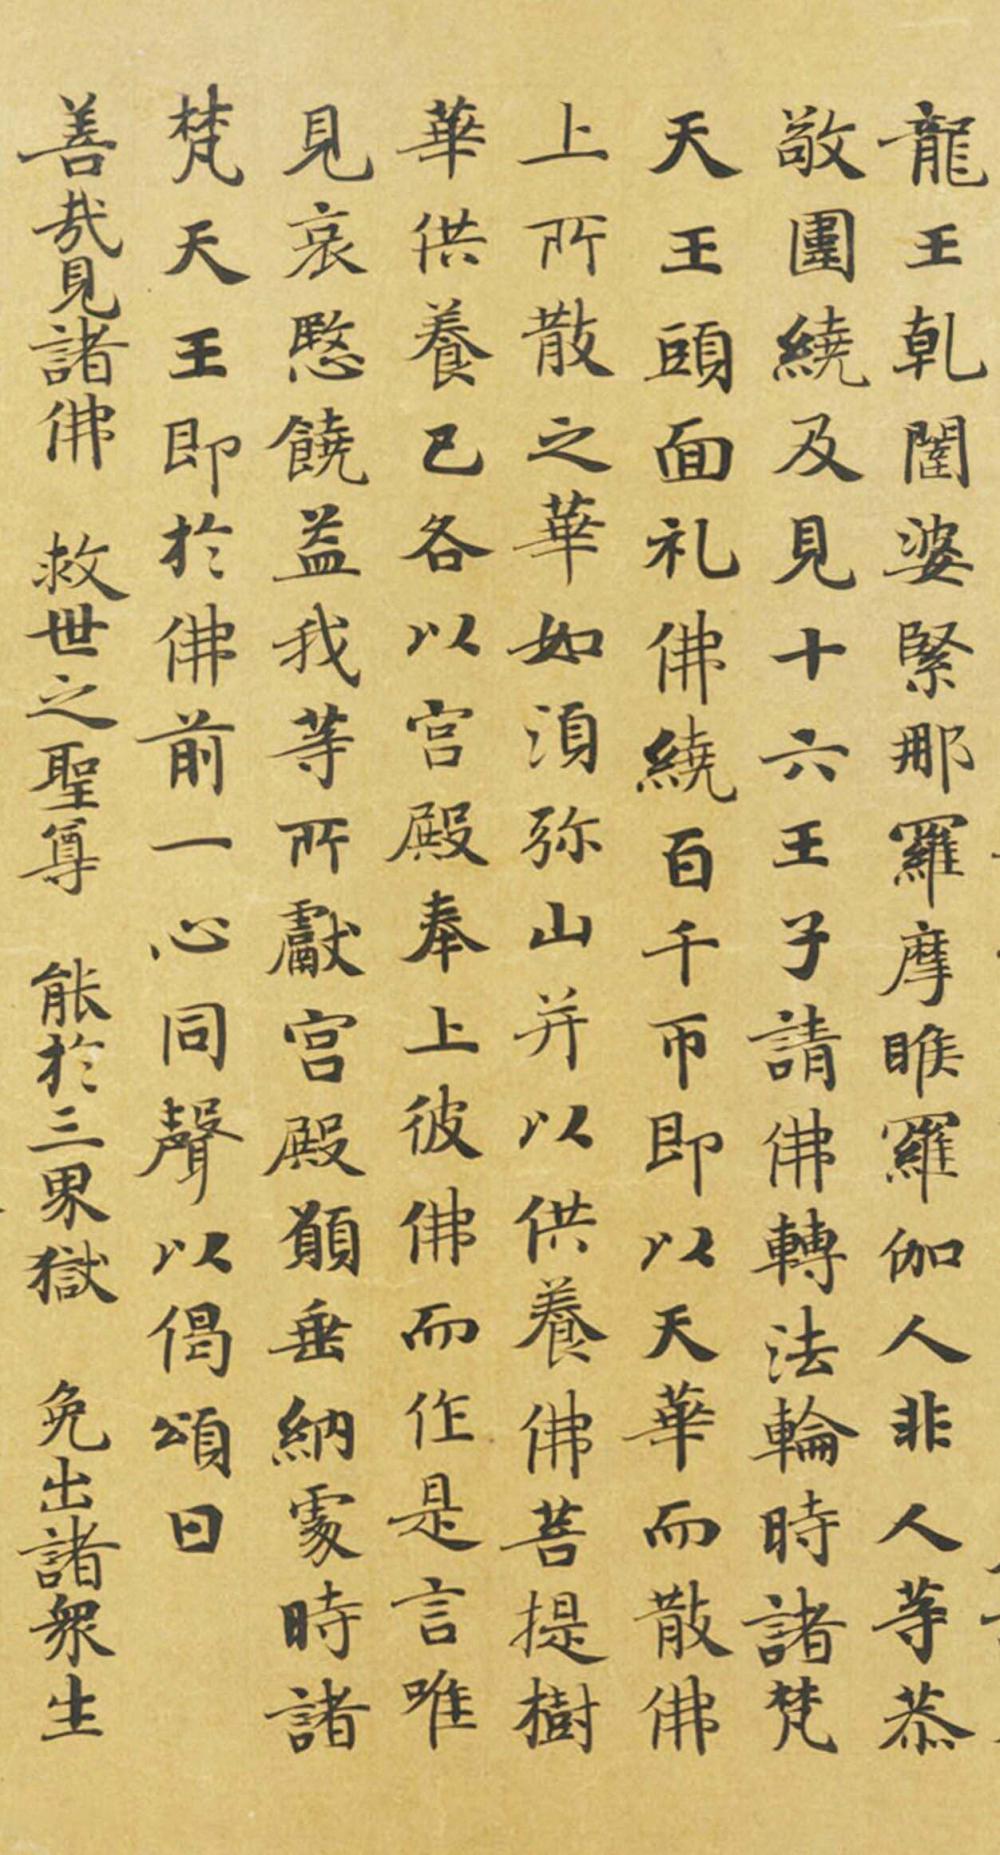 龍王乹闥婆緊那羅摩睺羅伽人非人等恭
敬圍繞及見十六王子請佛轉法輪時諸梵
天王頭面礼佛繞百千帀即以天華而散佛
上所散之華如湏弥山并以供養佛菩提樹
華供養已各以宫殿奉上彼佛而作是言唯
見哀愍饒益我等所獻宫殿願垂納處時諸
梵天王即於佛前一心同聲以偈頌曰
善哉見諸佛 救世之聖尊 能於三界獄 免出諸衆生